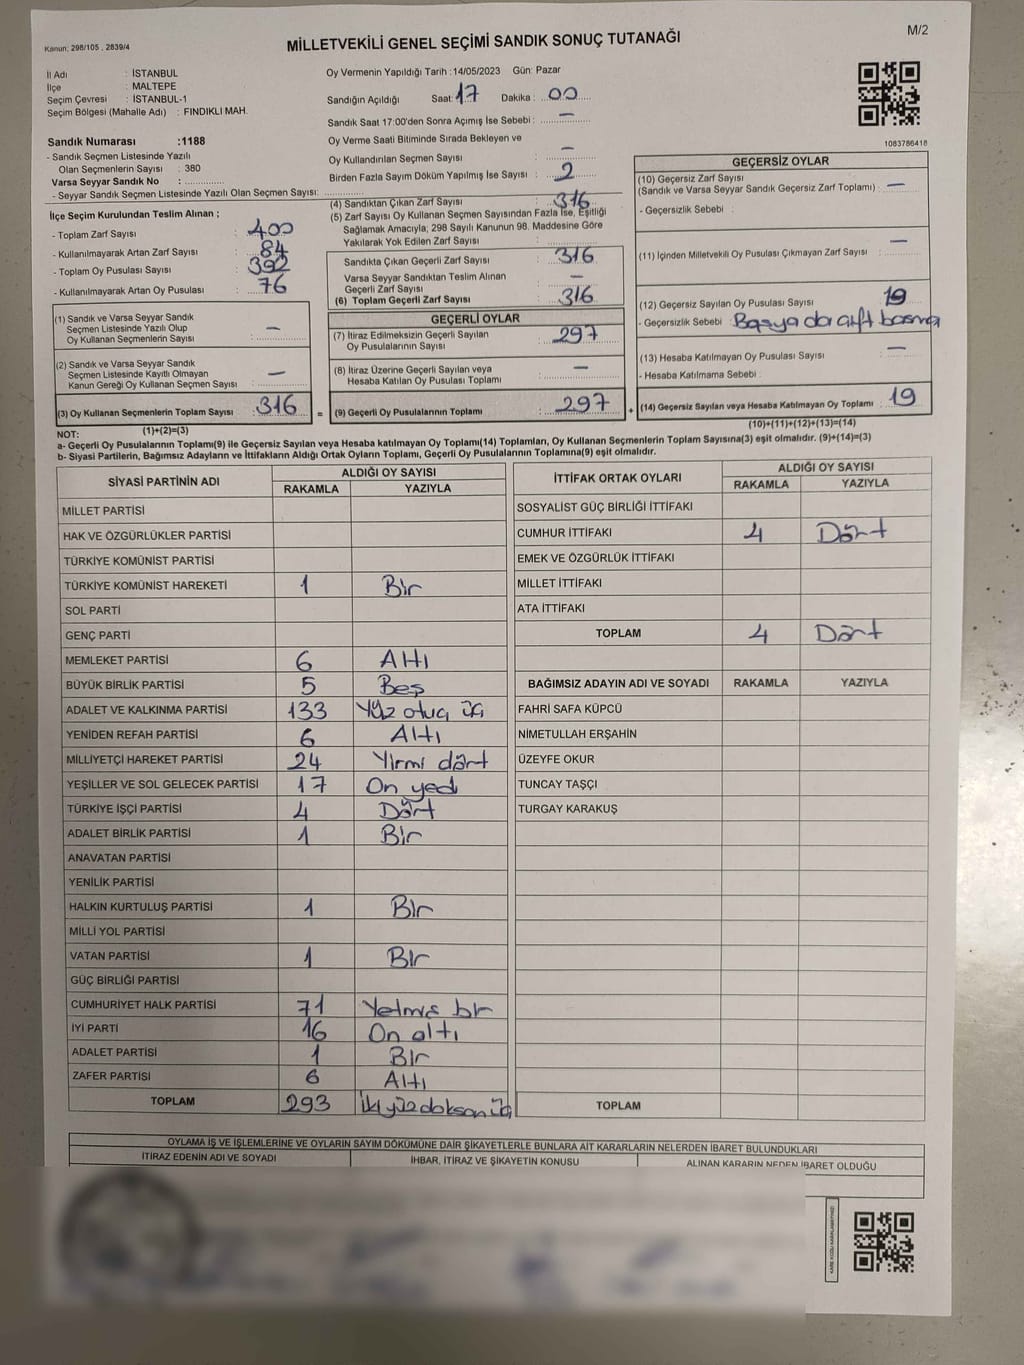 Kanun: 298/105 , 2839/4
MİLLETVEKİLİ GENEL SEÇİMİ SANDIK SONUÇ TUTANAĞI
M/2
İl Adı : İSTANBUL
İlçe : MALTEPE
Seçim Çevresi : İSTANBUL-1
Seçim Bölgesi (Mahalle Adı) : FINDIKLI MAH.
Sandık Numarası :1188
- Sandık Seçmen Listesinde Yazılı
Olan Seçmenlerin Sayısı : 380
Varsa Seyyar Sandık No :
- Seyyar Sandık Seçmen Listesinde Yazılı Olan Seçmen Sayısı:
Oy Vermenin Yapıldığı Tarih :14/05/2023 Gün: Pazar
Sandığın Açıldığı Saat: 17 Dakika : 00
Sandık Saat 17:00'den Sonra Açımış İse Sebebi : —
Oy Verme Saati Bitiminde Sırada Bekleyen ve
Oy Kullandırılan Seçmen Sayısı : —
Birden Fazla Sayım Döküm Yapılmış İse Sayısı : 2
1083786418
İlçe Seçim Kurulundan Teslim Alınan ;
- Toplam Zarf Sayısı : 400
- Kullanılmayarak Artan Zarf Sayısı : 84
- Toplam Oy Pusulası Sayısı : 392
- Kullanılmayarak Artan Oy Pusulası : 76
(1) Sandık ve Varsa Seyyar Sandık
Seçmen Listesinde Yazılı Olup
Oy Kullanan Seçmenlerin Sayısı : —
(2) Sandık ve Varsa Seyyar Sandık
Seçmen Listesinde Kayıtlı Olmayan
Kanun Gereği Oy Kullanan Seçmen Sayısı : —
(3) Oy Kullanan Seçmenlerin Toplam Sayısı : 316 =
(1)+(2)=(3)
(4) Sandıktan Çıkan Zarf Sayısı : 316
(5) Zarf Sayısı Oy Kullanan Seçmen Sayısından Fazla İse, Eşitliği
Sağlamak Amacıyla; 298 Sayılı Kanunun 98. Maddesine Göre
Yakılarak Yok Edilen Zarf Sayısı :
Sandıkta Çıkan Geçerli Zarf Sayısı : 316
Varsa Seyyar Sandıktan Teslim Alınan
Geçerli Zarf Sayısı : —
(6) Toplam Geçerli Zarf Sayısı : 316
GEÇERLİ OYLAR
(7) İtiraz Edilmeksizin Geçerli Sayılan
Oy Pusulalarının Sayısı : 297
(8) İtiraz Üzerine Geçerli Sayılan veya
Hesaba Katılan Oy Pusulası Toplamı : —
(9) Geçerli Oy Pusulalarının Toplamı : 297 +
GEÇERSİZ OYLAR
(10) Geçersiz Zarf Sayısı
(Sandık ve Varsa Seyyar Sandık Geçersiz Zarf Toplamı) : —
- Geçersizlik Sebebi :
(11) İçinden Milletvekili Oy Pusulası Çıkmayan Zarf Sayısı : —
(12) Geçersiz Sayılan Oy Pusulası Sayısı : 19
- Geçersizlik Sebebi : Başya da çift basma
(13) Hesaba Katılmayan Oy Pusulası Sayısı : —
- Hesaba Katılmama Sebebi :
(14) Geçersiz Sayılan veya Hesaba Katılmayan Oy Toplamı : 19
(10)+(11)+(12)+(13)=(14)
NOT:
a- Geçerli Oy Pusulalarının Toplamı(9) ile Geçersiz Sayılan veya Hesaba katılmayan Oy Toplamı(14) Toplamları, Oy Kullanan Seçmenlerin Toplam Sayısına(3) eşit olmalıdır. (9)+(14)=(3)
b- Siyasi Partilerin, Bağımsız Adayların ve İttifakların Aldığı Ortak Oyların Toplamı, Geçerli Oy Pusulalarının Toplamına(9) eşit olmalıdır.
SİYASİ PARTİNİN ADI
ALDIĞI OY SAYISI
RAKAMLA YAZIYLA
MİLLET PARTİSİ
HAK VE ÖZGÜRLÜKLER PARTİSİ
TÜRKİYE KOMÜNİST PARTİSİ
TÜRKİYE KOMÜNİST HAREKETİ 1 Bir
SOL PARTİ
GENÇ PARTİ
MEMLEKET PARTİSİ 6 Altı
BÜYÜK BİRLİK PARTİSİ 5 Beş
ADALET VE KALKINMA PARTİSİ 133 Yüz otuz üç
YENİDEN REFAH PARTİSİ 6 Altı
MİLLİYETÇİ HAREKET PARTİSİ 24 Yirmi dört
YEŞİLLER VE SOL GELECEK PARTİSİ 17 On yedi
TÜRKİYE İŞÇİ PARTİSİ 4 Dört
ADALET BİRLİK PARTİSİ 1 Bir
ANAVATAN PARTİSİ
YENİLİK PARTİSİ
HALKIN KURTULUŞ PARTİSİ 1 Bir
MİLLİ YOL PARTİSİ
VATAN PARTİSİ 1 Bir
GÜÇ BİRLİĞİ PARTİSİ
CUMHURİYET HALK PARTİSİ 71 Yetmiş bir
İYİ PARTİ 16 On altı
ADALET PARTİSİ 1 Bir
ZAFER PARTİSİ 6 Altı
TOPLAM 293 İki yüz doksan üç
İTTİFAK ORTAK OYLARI
ALDIĞI OY SAYISI
RAKAMLA YAZIYLA
SOSYALİST GÜÇ BİRLİĞİ İTTİFAKI
CUMHUR İTTİFAKI 4 Dört
EMEK VE ÖZGÜRLÜK İTTİFAKI
MİLLET İTTİFAKI
ATA İTTİFAKI
TOPLAM 4 Dört
BAĞIMSIZ ADAYIN ADI VE SOYADI RAKAMLA YAZIYLA
FAHRİ SAFA KÜPCÜ
NİMETULLAH ERŞAHİN
ÜZEYFE OKUR
TUNCAY TAŞÇI
TURGAY KARAKUŞ
TOPLAM
OYLAMA İŞ VE İŞLEMLERİNE VE OYLARIN SAYIM DÖKÜMÜNE DAİR ŞİKAYETLERLE BUNLARA AİT KARARLARIN NELERDEN İBARET BULUNDUKLARI
İTİRAZ EDENİN ADI VE SOYADI İHBAR, İTİRAZ VE ŞİKAYETİN KONUSU ALINAN KARARIN NEDEN İBARET OLDUĞU